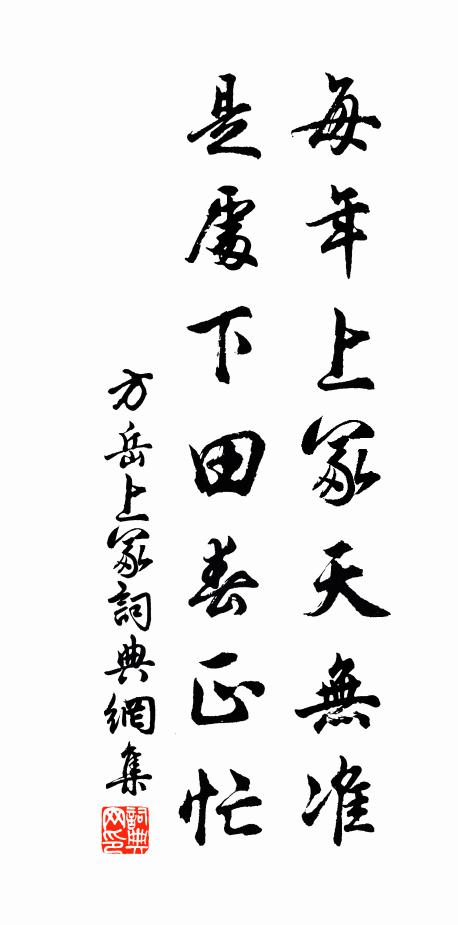 每年上冢天無准
是處下田春正忙
方岳上冢詞典網集
詞典网印